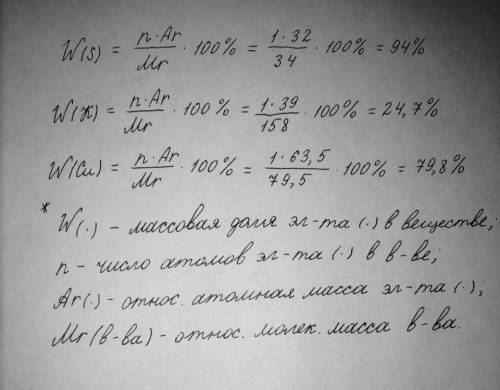 W(S) = n·Ar/Mr · 100% = 1·32/34 · 100% = 94%
W(K) = n·Ar/Mr · 100% = 1·39/158 · 100% = 24,7%
W(Cu) = n·Ar/Mr · 100% = 1·63,5/79,5 · 100% = 79,8%
* W(.) – массовая доля эл-та (.) в веществе;
n – число атомов эл-та (.) в в-ве;
Ar(.) – относ. атомная масса эл-та (.);
Mr(в-ва) – относ. молек. масса в-ва.